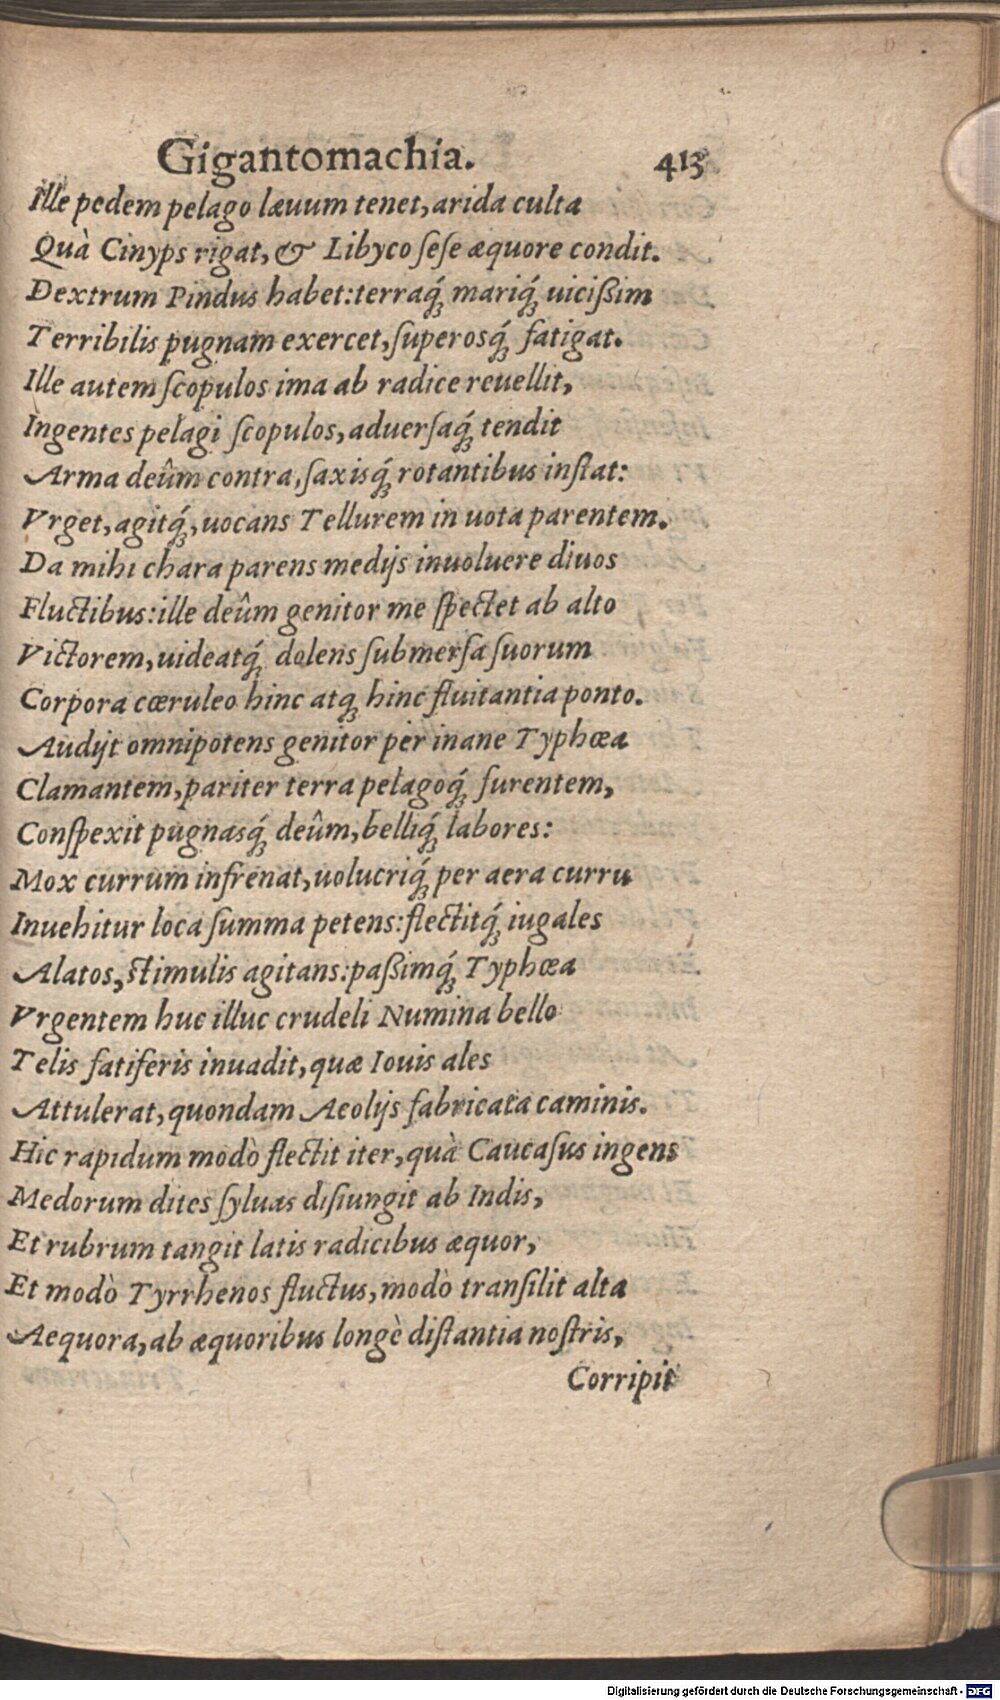 Gigantomachia. 413
Ille pedem pelago læuum tenet, arida culta
Quà Cinyps rigat, & Libyco ſeſe æquore condit.
Dextrum Pindus habet: terraq́; mariq́; uicißim
Terribilis pugnam exercet, ſuperosq́; fatigat.
Ille autem ſcopulos ima ab radice reuellit,
Ingentes pelagi ſcopulos, aduerſaq́; tendit
Arma deûm contra, ſaxisq́; rotantibus inſtat:
Vrget, agitq́;, uocans Tellurem in uota parentem.
Da mihi chara parens medijs inuoluere diuos
Fluctibus: ille deûm genitor me ſpectet ab alto
Victorem, uideatq́; dolens ſubmerſa ſuorum
Corpora cœruleo hinc atq; hinc fluitantia ponto.
Audijt omnipotens genitor per inane Typhœa
Clamantem, pariter terra pelagoq́; furentem,
Conſpexit pugnasq́; deûm, belliq́; labores:
Mox currum infrenat, uolucriq́; per aera curru
Inuehitur loca ſumma petens: flectitq́; iugales
Alatos, ſtimulis agitans: paßimq́; Typhœa
Vrgentem huc illuc crudeli Numina bello
Telis fatiferis inuadit, quæ Iouis ales
Attulerat, quondam Aeolijs fabricata caminis.
Hic rapidum modò flectit iter, quà Caucaſus ingens
Medorum dites ſyluas diſiungit ab Indis,
Et rubrum tangit latis radicibus æquor,
Et modò Tyrrhenos fluctus, modò tranſilit alta
Aequora, ab æquoribus longè diſtantia noſtris,
Corripit
Digitalisierung gefördert durch die Deutsche Forschungsgemeinschaft - DFG